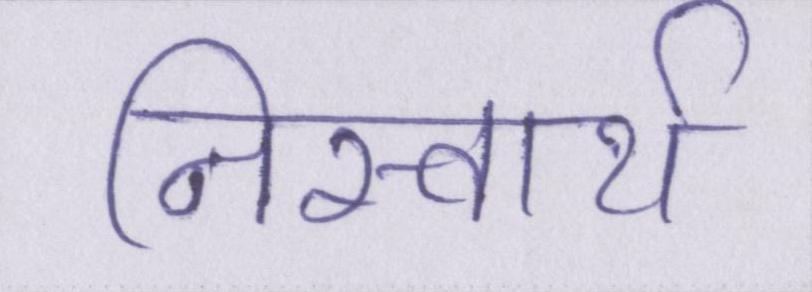 निस्वार्थ